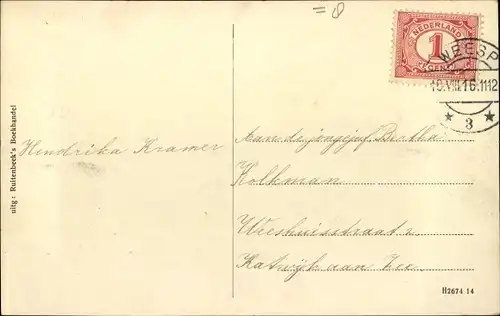 = 8
NEDERLAND
1
CENT
WEESP
19.VIII.16.11-12
* 3 *
Hendrika Kramer
Aan de jongejuf Bertha
Kolkman
Weeshuisstraat 2
Katwijk aan Zee
uitg: Ruitenbeek's Boekhandel
H2674 14